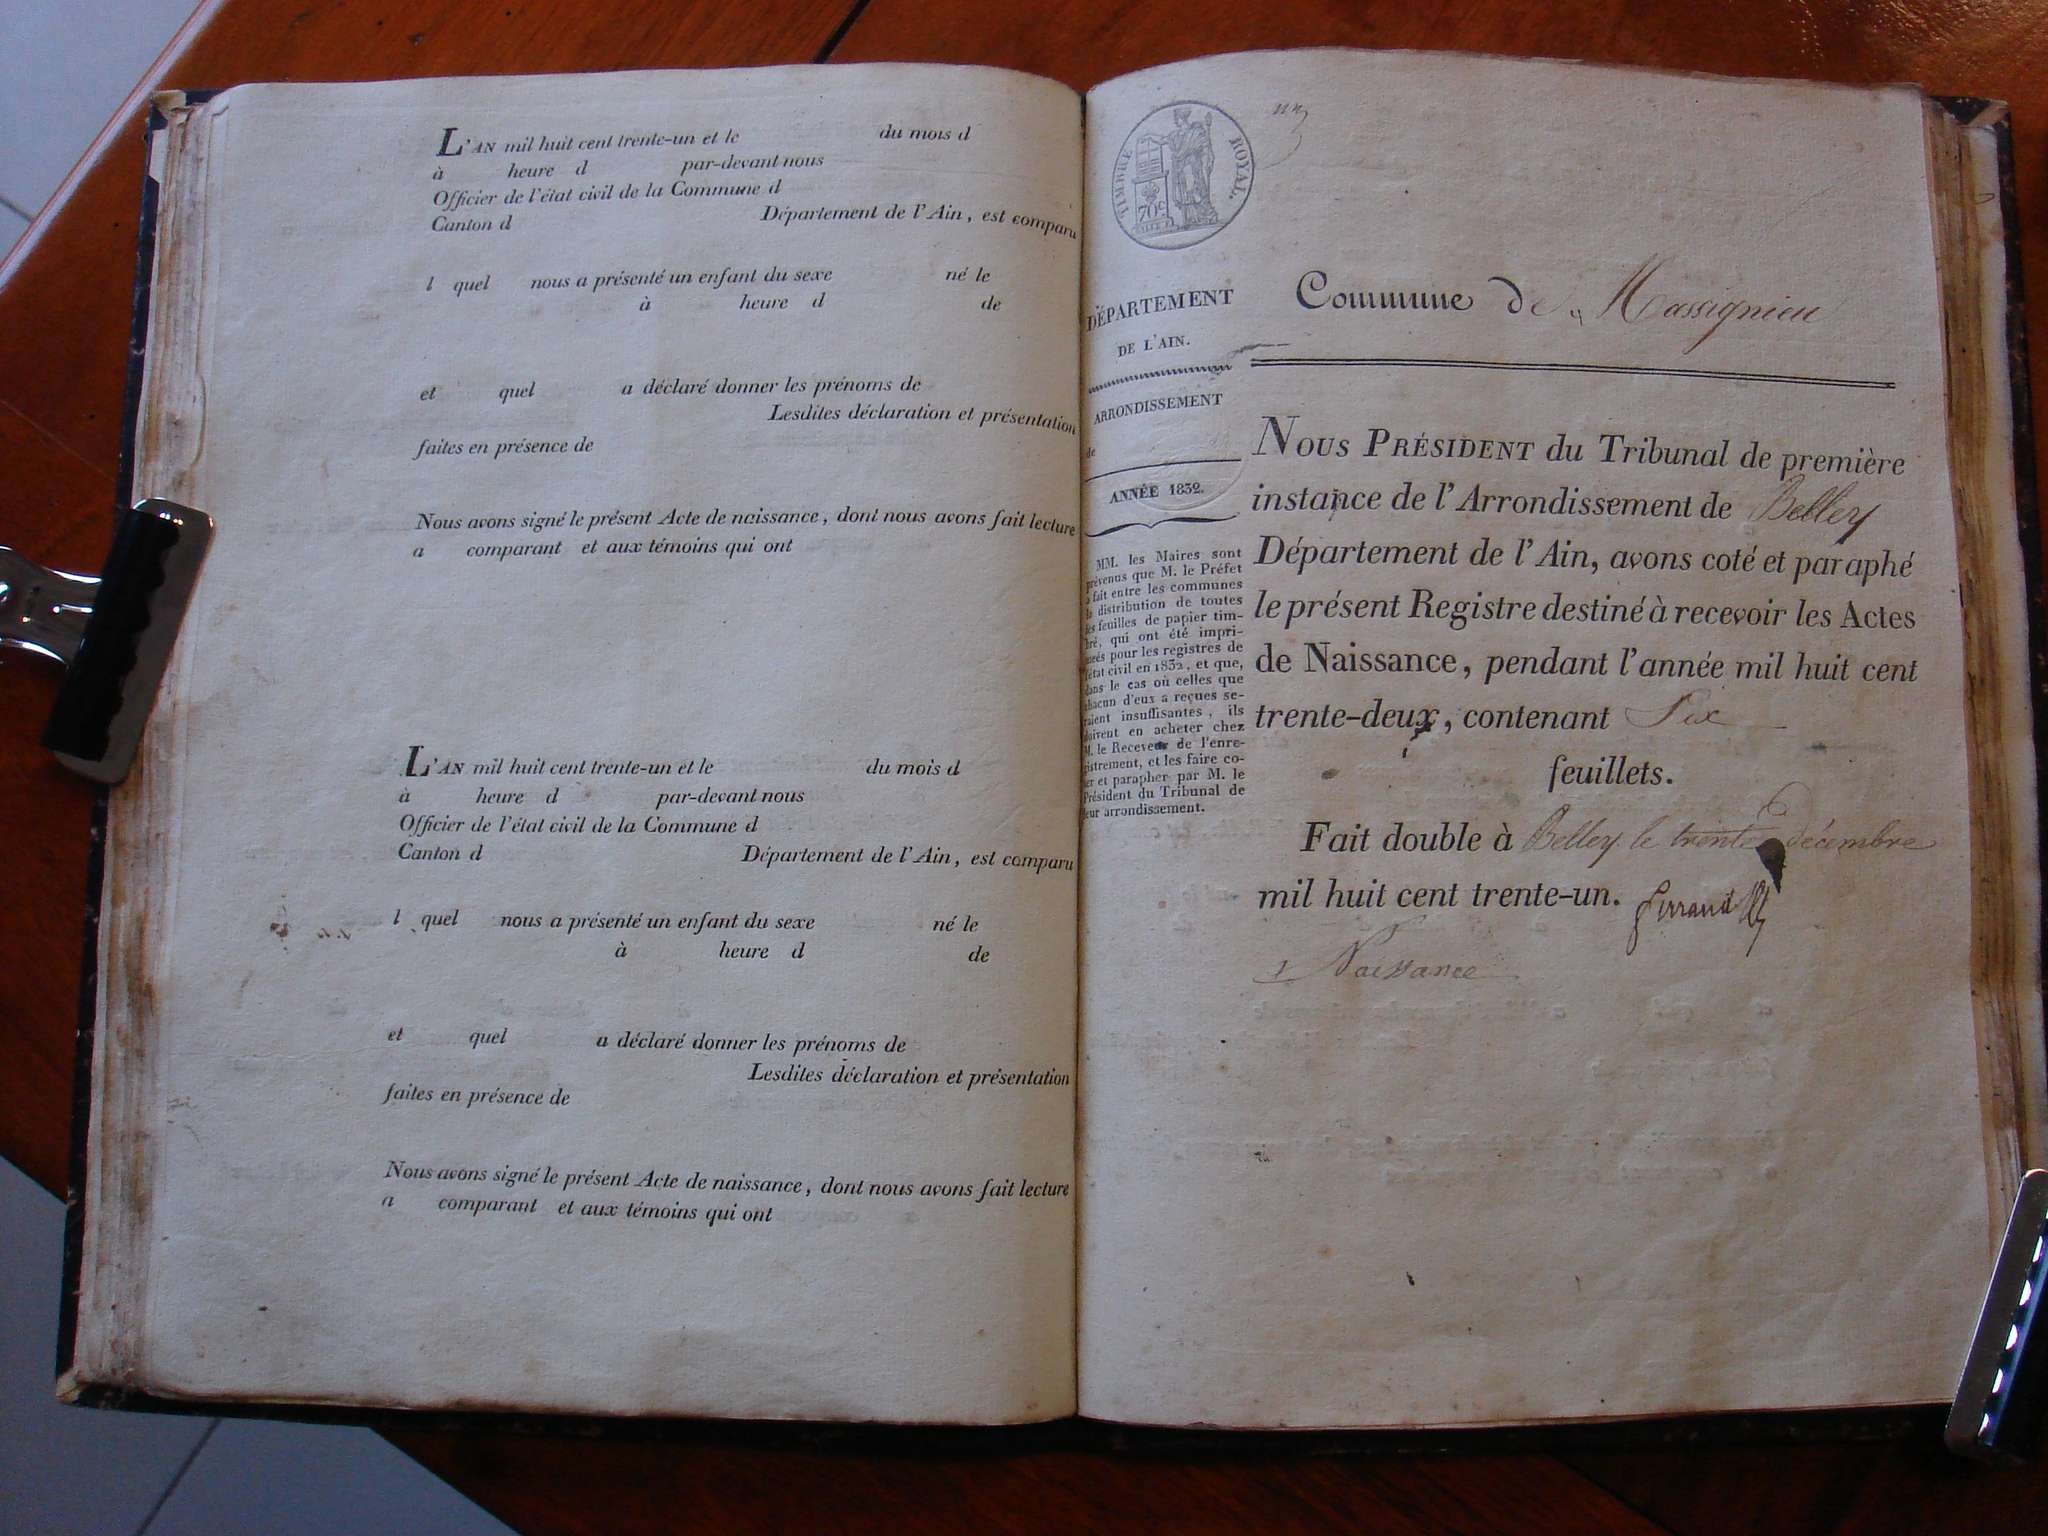 L'AN mil huit cent trente-un et le du mois d
à heure d par-devant nous
Officier de l'état civil de la Commune d
Canton d Département de l'Ain, est comparu
l quel nous a présenté un enfant du sexe né le
à heure d de
et quel a déclaré donner les prénoms de
Lesdites déclaration et présentation
faites en présence de
Nous avons signé le présent Acte de naissance, dont nous avons fait lecture
a comparant et aux témoins qui ont
L'AN mil huit cent trente-un et le du mois d
à heure d par-devant nous
Officier de l'état civil de la Commune d
Canton d Département de l'Ain, est comparu
l quel nous a présenté un enfant du sexe né le
à heure d de
et quel a déclaré donner les prénoms de
Lesdites déclaration et présentation
faites en présence de
Nous avons signé le présent Acte de naissance, dont nous avons fait lecture
a comparant et aux témoins qui ont
TIMBRE ROYAL.
70c
DÉPARTEMENT
DE L'AIN.
ARRONDISSEMENT
de
ANNÉE 1832.
MM. les Maires sont
prévenus que M. le Préfet
a fait entre les communes
la distribution de toutes
les feuilles de papier tim-
bré, qui ont été impri-
meés pour les registres de
l'état civil en 1832, et que,
dans le cas où celles que
chacun d'eux a reçues se-
raient insuffisantes, ils
doivent en acheter chez
M. le Receveur de l'enre-
gistrement, et les faire co-
ter et parapher par M. le
Président du Tribunal de
leur arrondissement.
Commune de Massignieu
NOUS PRÉSIDENT du Tribunal de première
instance de l'Arrondissement de Belley
Département de l'Ain, avons coté et paraphé
le présent Registre destiné à recevoir les Actes
de Naissance, pendant l'année mil huit cent
trente-deux, contenant Six
feuillets.
Fait double à Belley le trente décembre
mil huit cent trente-un.
Naissance